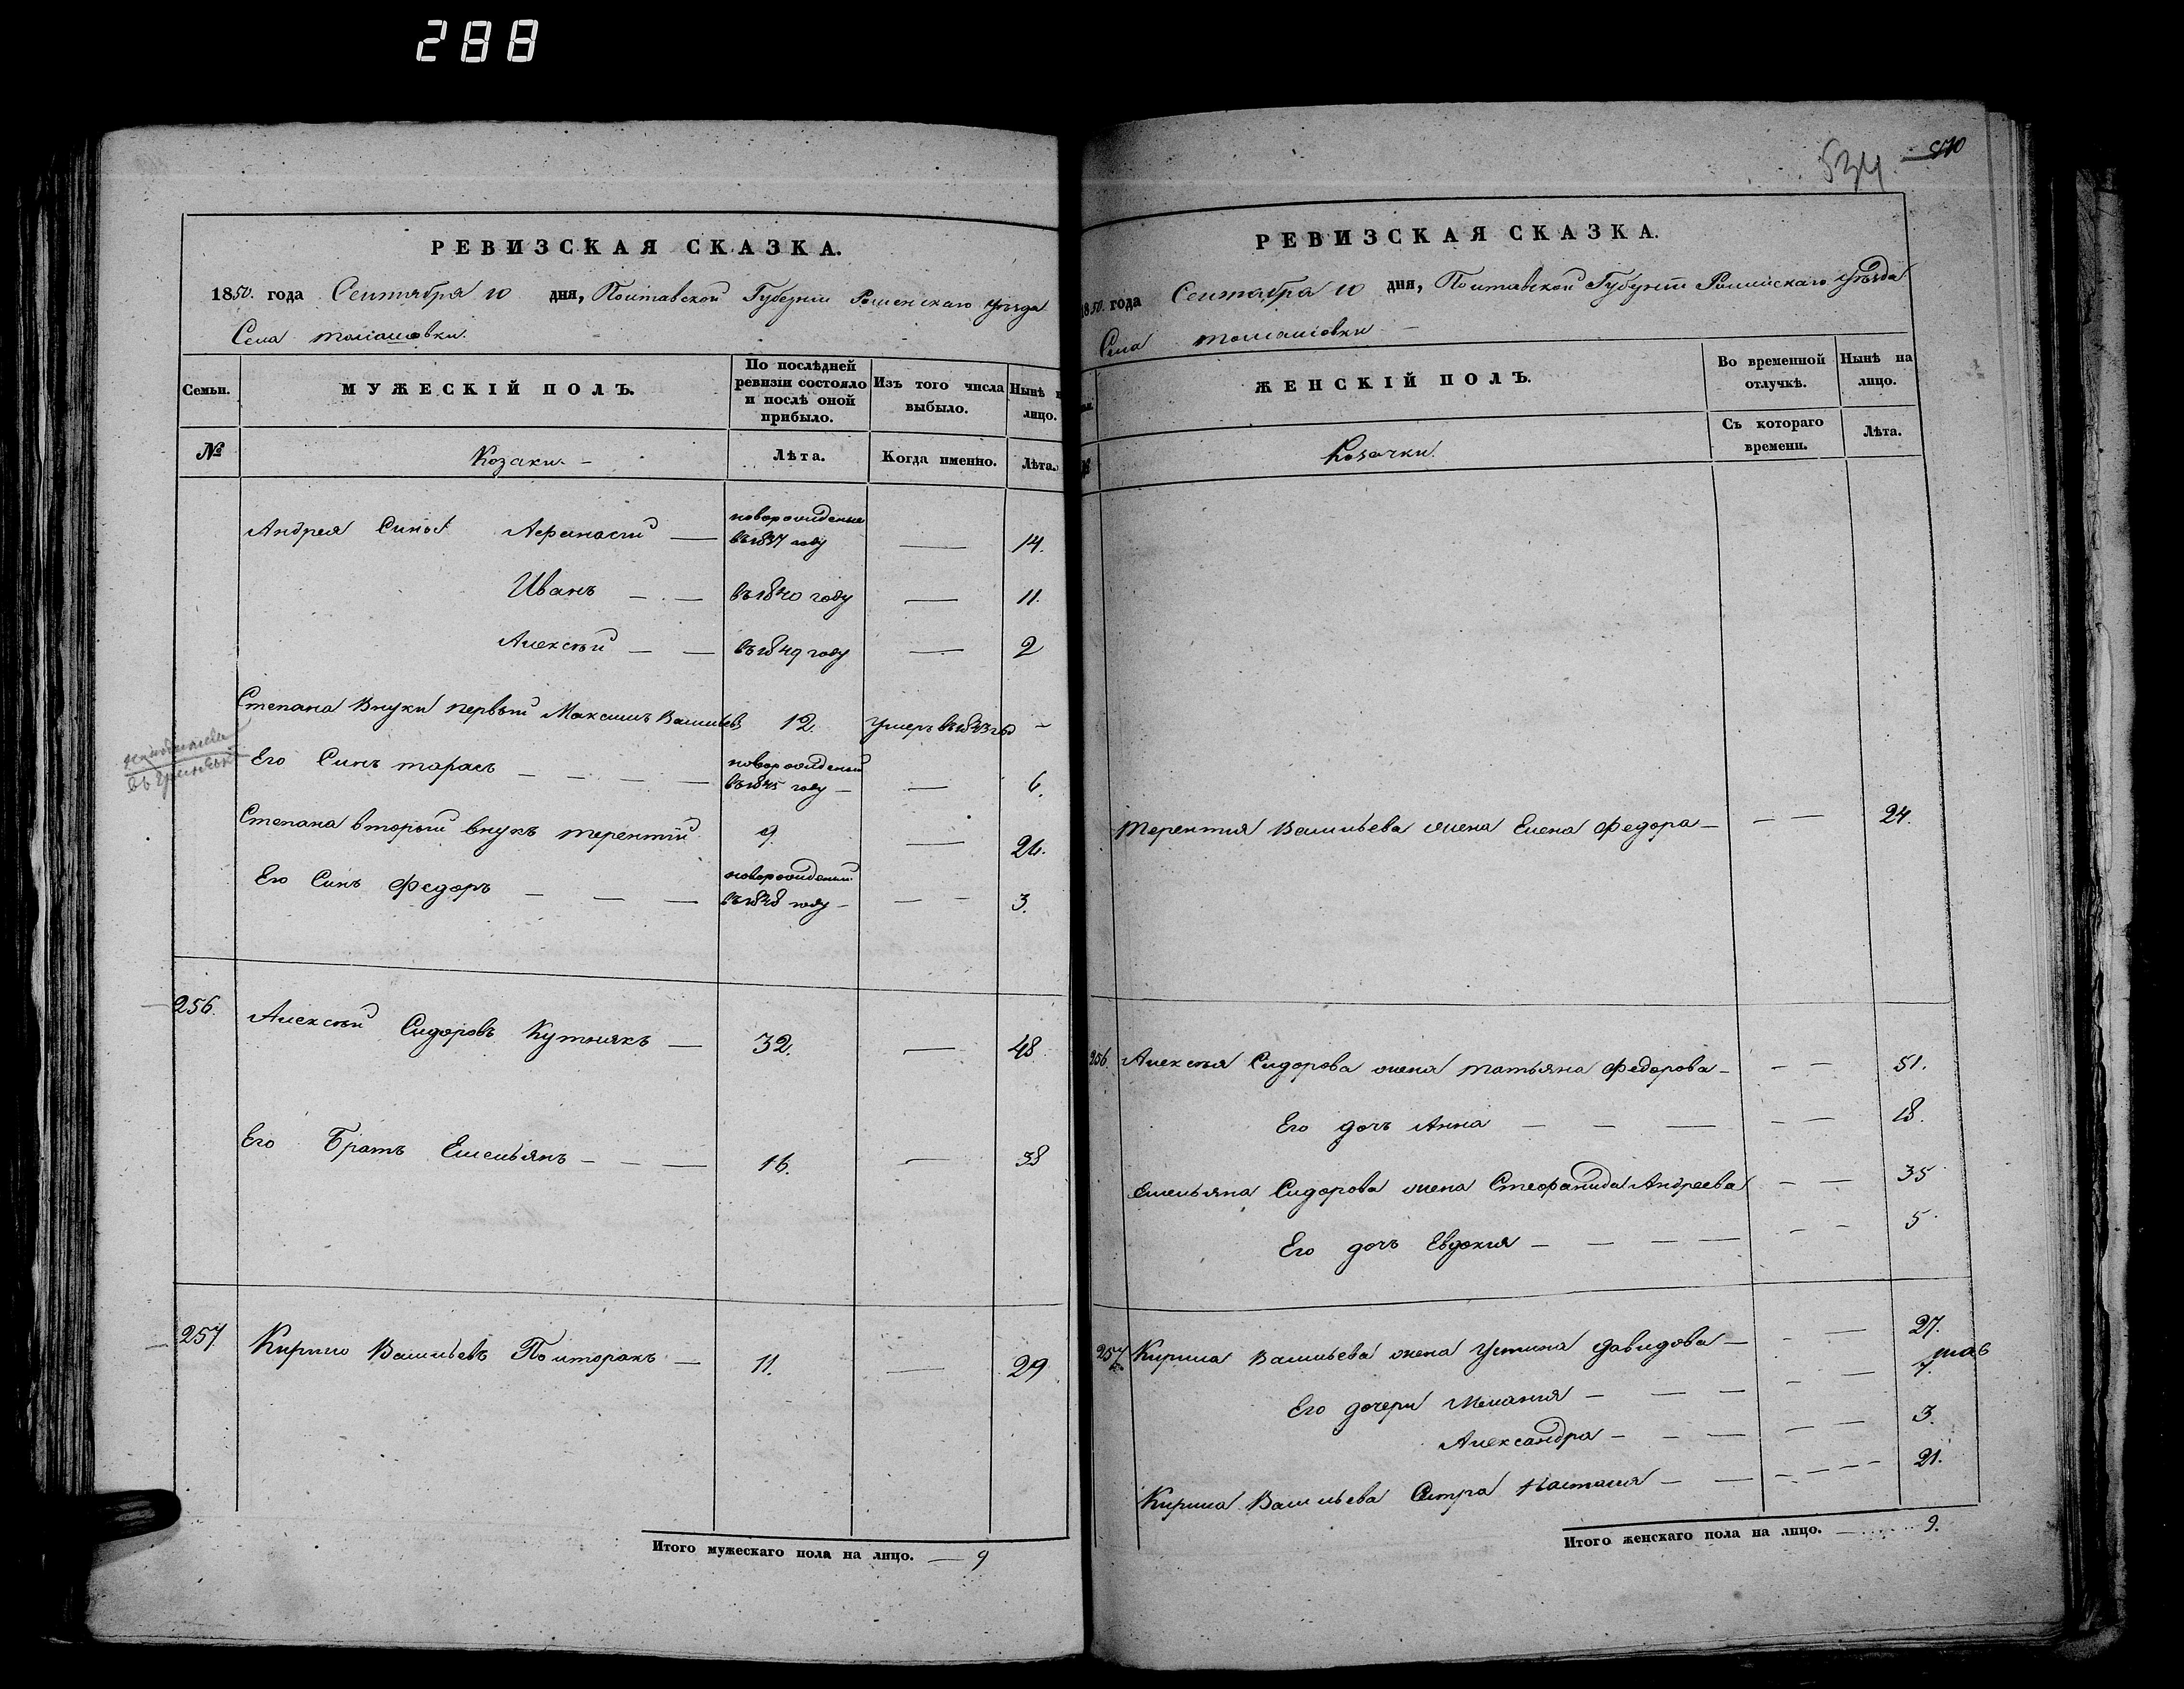 288
РЕВИЗСКАЯ СКАЗКА.
1850. года Сентября 10 дня, Полтавской Губерніи Роменскаго Уѣзда
Села Томашовки.
Семьи.
МУЖЕСКІЙ ПОЛЪ.
По послѣдней ревизіи состояло и послѣ оной прибыло.
Изъ того числа выбыло.
Нынѣ н лицо.
№
Козаки. –
Лѣта.
Когда именно.
Лѣта.
Андрея Сины Афанасій — новорожденые въ 1837 году — 14.
Иванъ — — въ 1840 году — 11.
Алексѣй — — въ 1849 году — 2
Степана Внуки первый Максимъ Васильевъ 12. Умеръ въ 1843 году –
въ
Его Синъ Тарасъ — — — — новорожденый въ 1845 году — — 6.
Степана вторый внукъ Терентій 9. — 26.
Его Синъ Федоръ — — — новорожденый въ 1848 году — — — 3.
256. Алексѣй Сидоровъ Кутнякъ — 32. — 48
Его Братъ Емельянъ — — — 16. — 38
257. Кирило Васильевъ Полторакъ — 11. — 29
Итого мужескаго пола на лицо. — 9
534. 510
РЕВИЗСКАЯ СКАЗКА.
1850. года Сентября 10 дня, Полтавской Губерніи Роменскаго Уѣзда
Села Томашовки –
ЖЕНСКІЙ ПОЛЪ.
Во временной отлучкѣ.
Нынѣ на лицо.
№
Козачки.
Съ котораго времени.
Лѣта.
Терентія Васильева жена Елена Федора — — — 24.
256. Алексѣя Сидорова жена Татьяна Федорова — — — 51.
Его дочъ Анна — — — — — 18.
Емельяна Сидорова жена Стефанида Андреева — — 35
Его дочъ Евдокия — — — — — — 5
257. Кирила Васильева жена Устина Давидова — – — 27.
Его дочери Мелания — — — – — 7.
Александра — — — — — 3.
Кирила Васильева Сестра Настасия — — — — — — 21.
Итого женскаго пола на лицо. — 9.